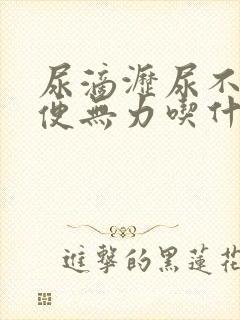 尿滴瀝尿不
便無力喫什
進擊的黑蓮花